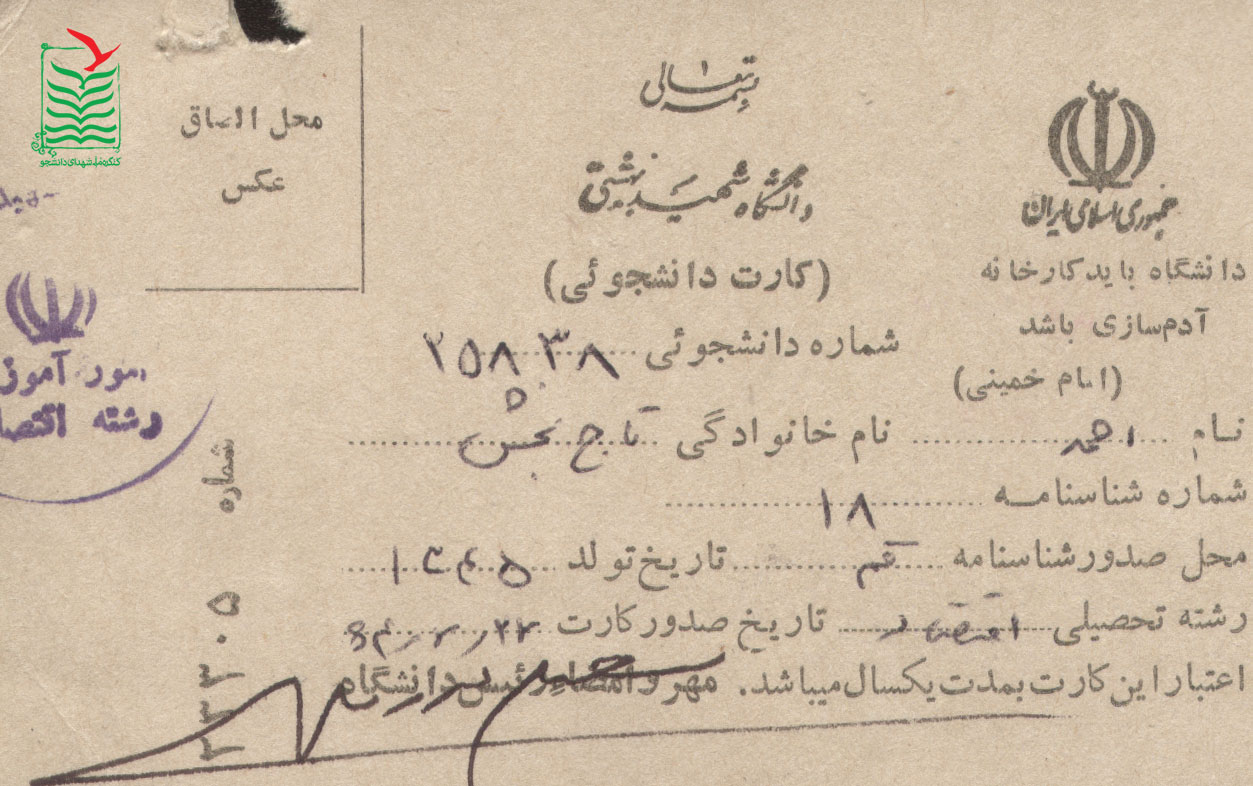 بسمه تعالی
جمهوری اسلامی ایران
دانشگاه باید کارخانه
آدم‌سازی باشد
(امام خمینی)
دانشگاه شهید بهشتی
(کارت دانشجوئی)
شماره دانشجوئی
محل الصاق
عکس
نام احمد نام خانوادگی تاج بخش
شماره شناسنامه ۱۸
محل صدور شناسنامه قم تاریخ تولد ۱۳۴۵
رشته تحصیلی اقتصاد تاریخ صدور کارت
اعتبار این کارت بمدت یکسال میباشد. مهر و امضاء رئیس دانشگاه
شماره
امور آموز
رشته اقتصا
کنگره ملی شهدای دانشجو